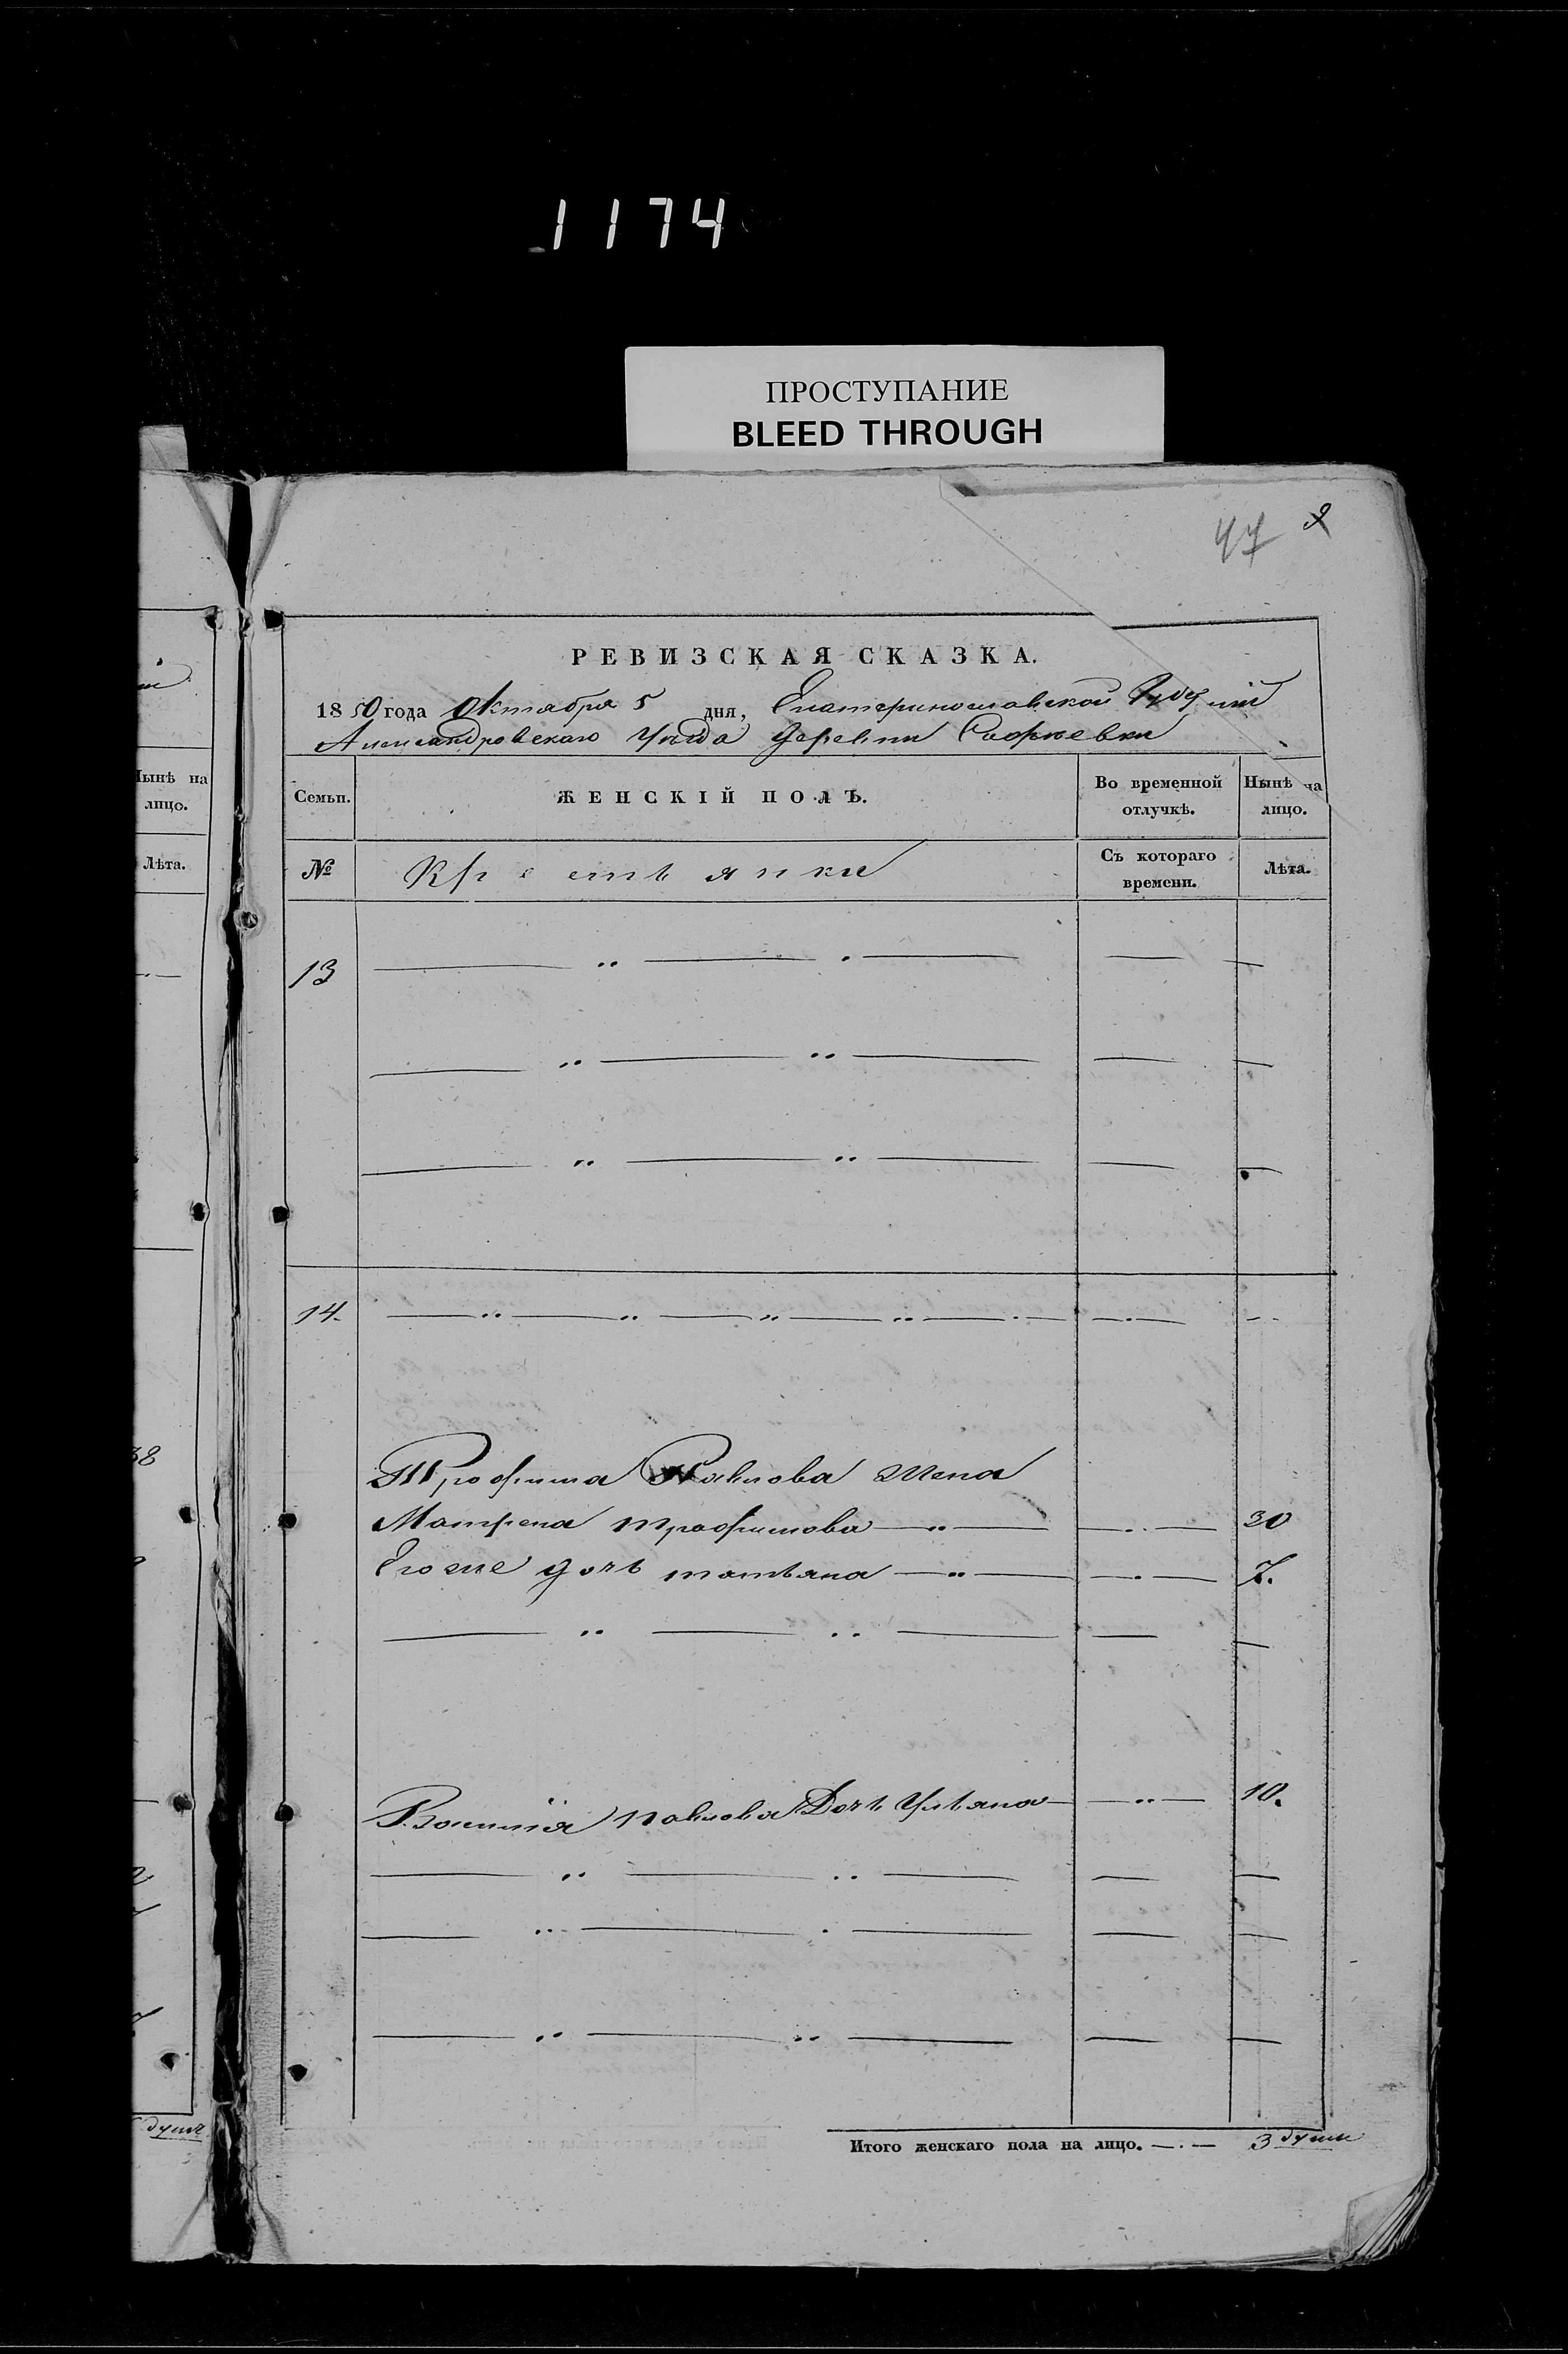 1174
ПРОСТУПАНИЕ
BLEED THROUGH
47
РЕВИЗСКАЯ СКАЗКА.
1850 года Октября 5 дня, Екатеринославской Губерніи
Александровскаго Уезда Деревни Софиевки
Нынѣ на лицо.
Лѣта.
38
душъ
Семьи. ЖЕНСКІЙ ПОЛЪ. Во временной отлучкѣ. Нынѣ на лицо.
№ Крестьянки Съ котораго времени. Лѣта.
13
14.
Трофима Павлова жена
Матрена Трофимова 30
Его же дочь татьяна 7.
павлова Дочь Ульяна 10.
Итого женскаго пола на лицо. 3 души